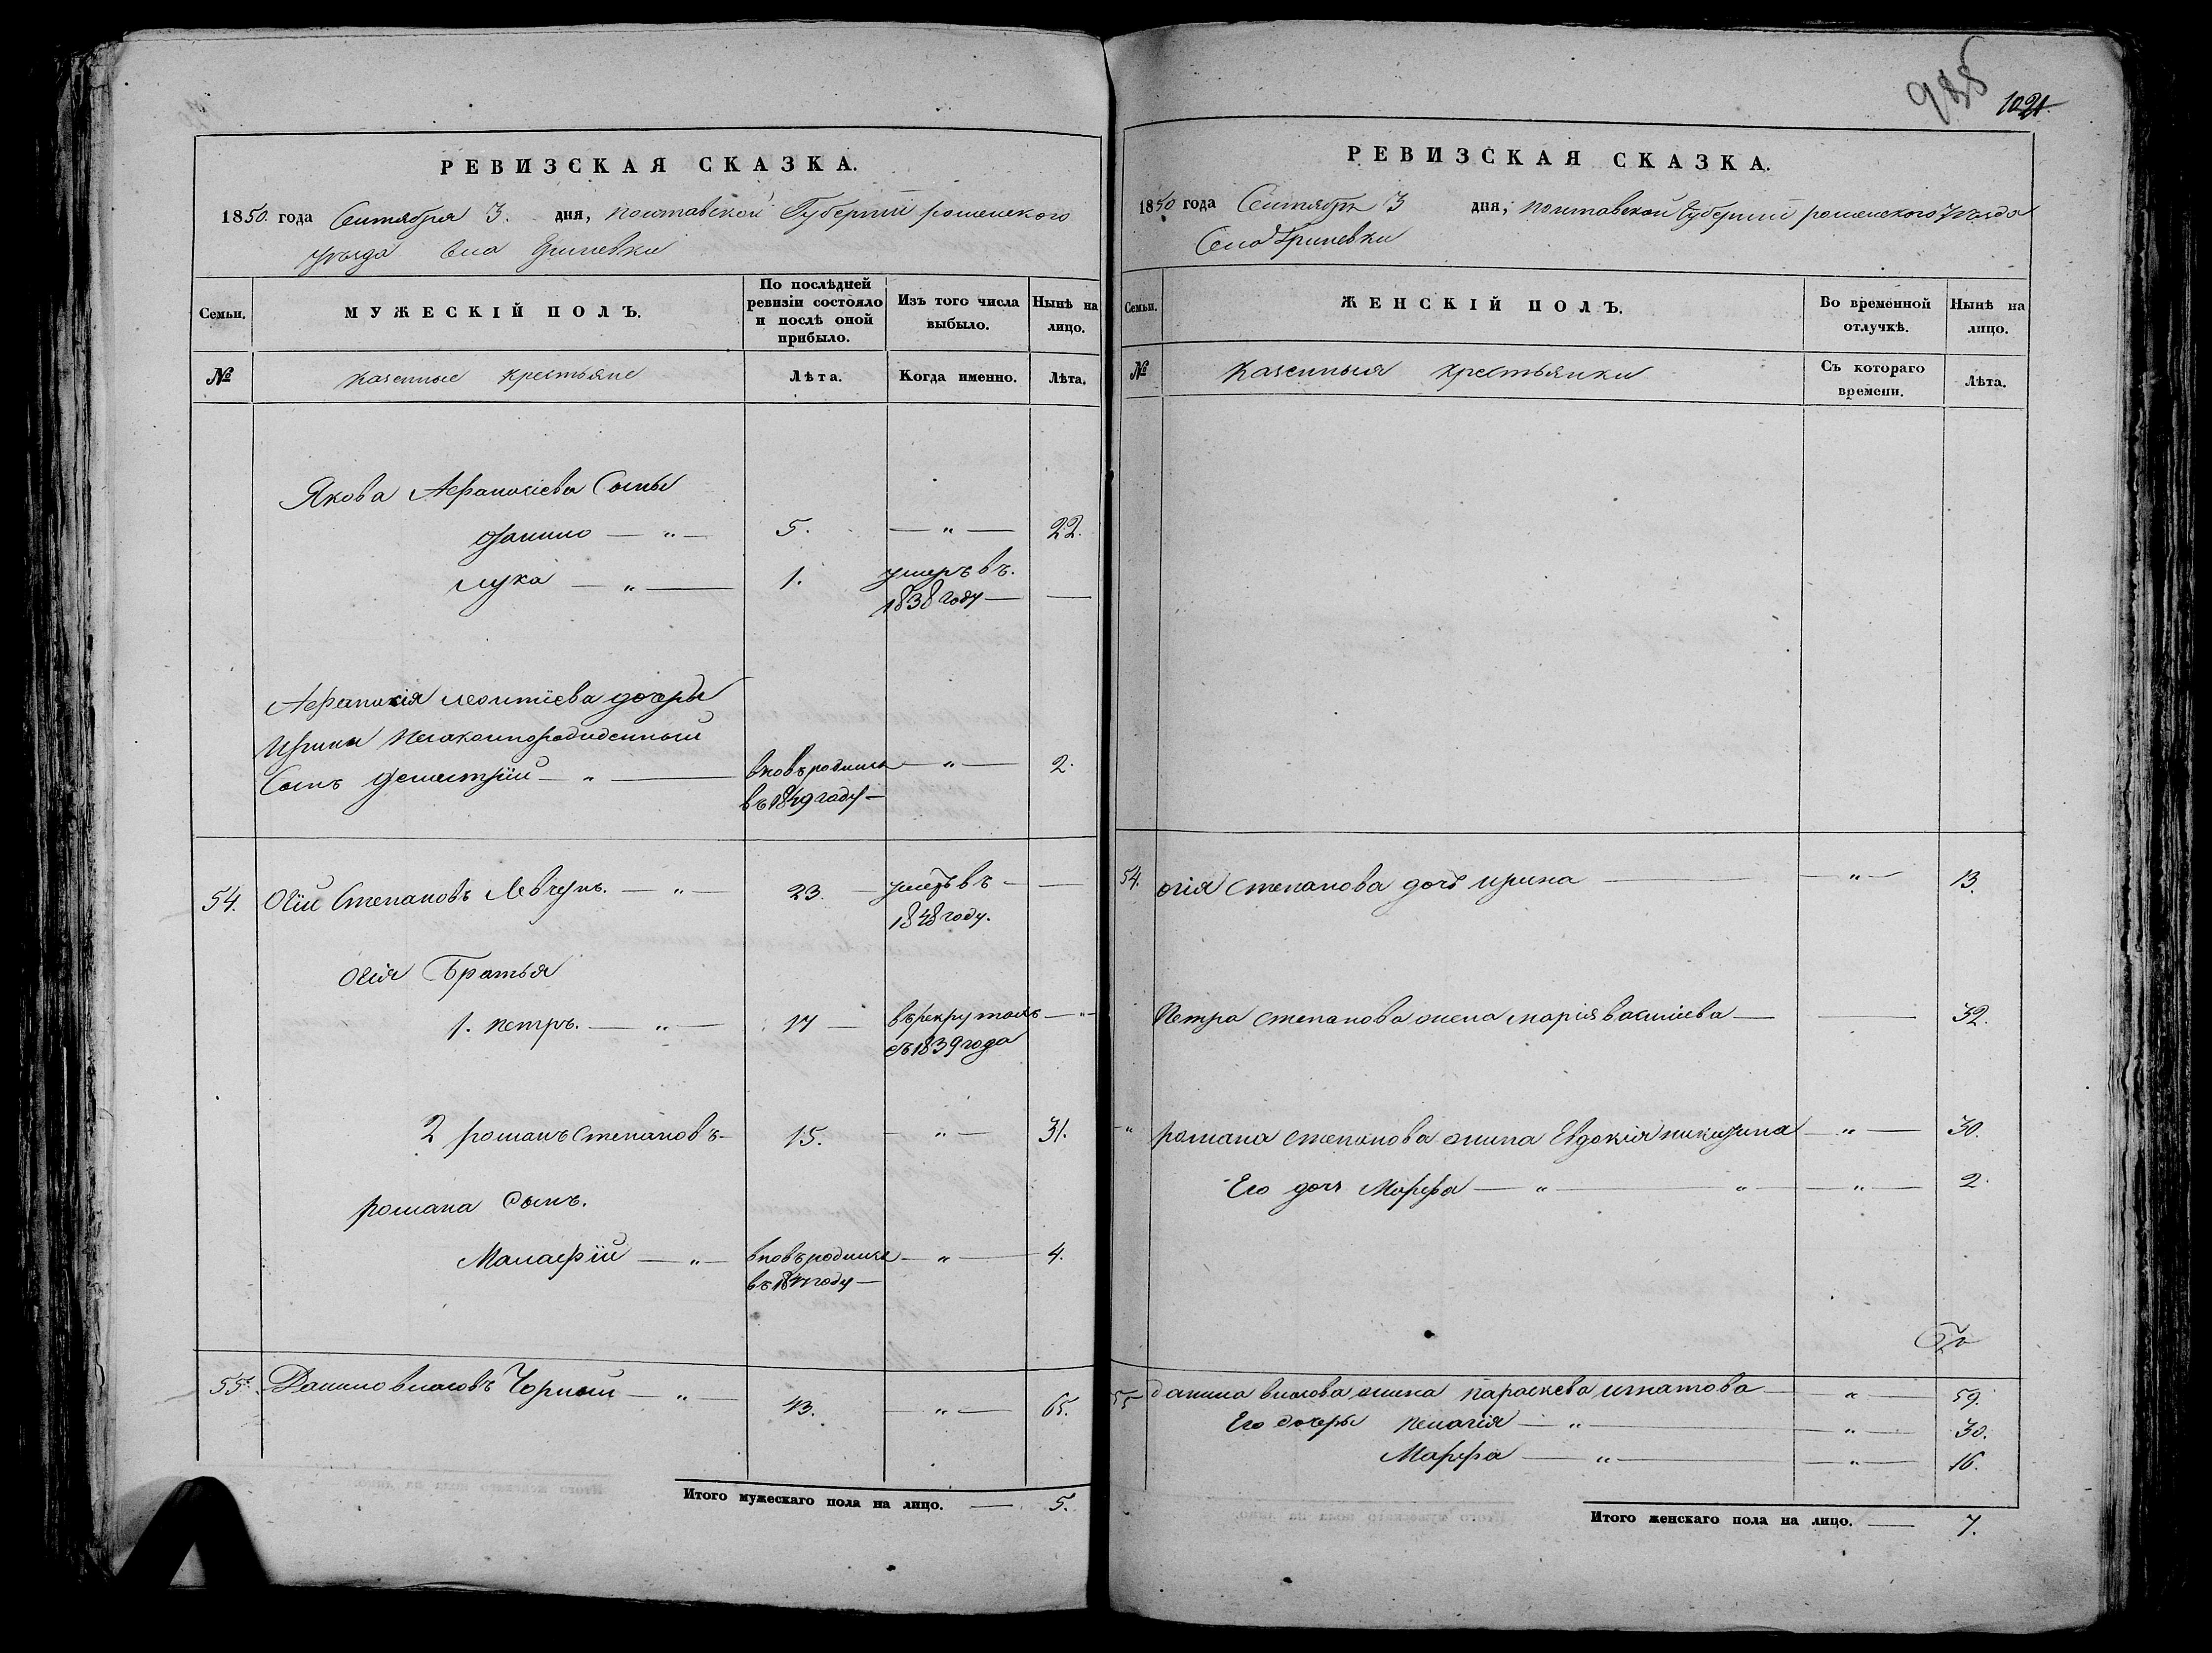 985
1021
РЕВИЗСКАЯ СКАЗКА.
1850 года Сентября 3. дня, полтавской Губернии роменского
уѣзда Села Гриневки
Семьи.
МУЖЕСКІЙ ПОЛЪ.
По послѣдней ревизіи состояло и послѣ оной прибыло.
Изъ того числа выбыло.
Нынѣ на лицо.
№
казенные крестьяне
Лѣта.
Когда именно.
Лѣта.
Якова Афанасіева Сыны
данило — „ — 5. — „ — 22.
лука — „ — 1. умеръ въ.
1838 году — —
Афанасія леонтіева дочери
Ирины Незаконнорожденный
Сынъ Демитрій — „ — вновь родился — „ — 2.
въ 1849 году —
54. Огій Степановъ Левчунъ. — „ — 23. умеръ въ — —
1848 году.
Огія Братья
1. петръ. — „ — 17 — въ рекрутахъ — „ —
съ 1839 года
2 романъ Степановъ — 15. — „ — 31.
романа сынъ.
Малафій — „ — вновь родился — „ — 4.
въ году —
55. Данило власовъ Чорный — „ — — „ — 65.
Итого мужескаго пола на лицо. — 5.
РЕВИЗСКАЯ СКАЗКА.
1850 года Сентября 3 дня, полтавской Губернии роменского уѣзда
Села Гриневки
Семьи.
ЖЕНСКІЙ ПОЛЪ.
Во временной отлучкѣ.
Нынѣ на лицо.
№
Казенныя крестьянки
Съ котораго времени.
Лѣта.
54. огія Степанова дочь ирина — — „ — 13.
Петра степанова жена марія василіева — — 32.
„ романа степанова жина Евдокія никитина — „ — 30.
Его дочь Марфа — „ — „ — „ — 2.
55 данила власова жина параскева игнатова — „ 59.
Его дочери пелагія — „ — „ — 30.
Марфа — „ — „ — 16.
Итого женскаго пола на лицо. — 7.